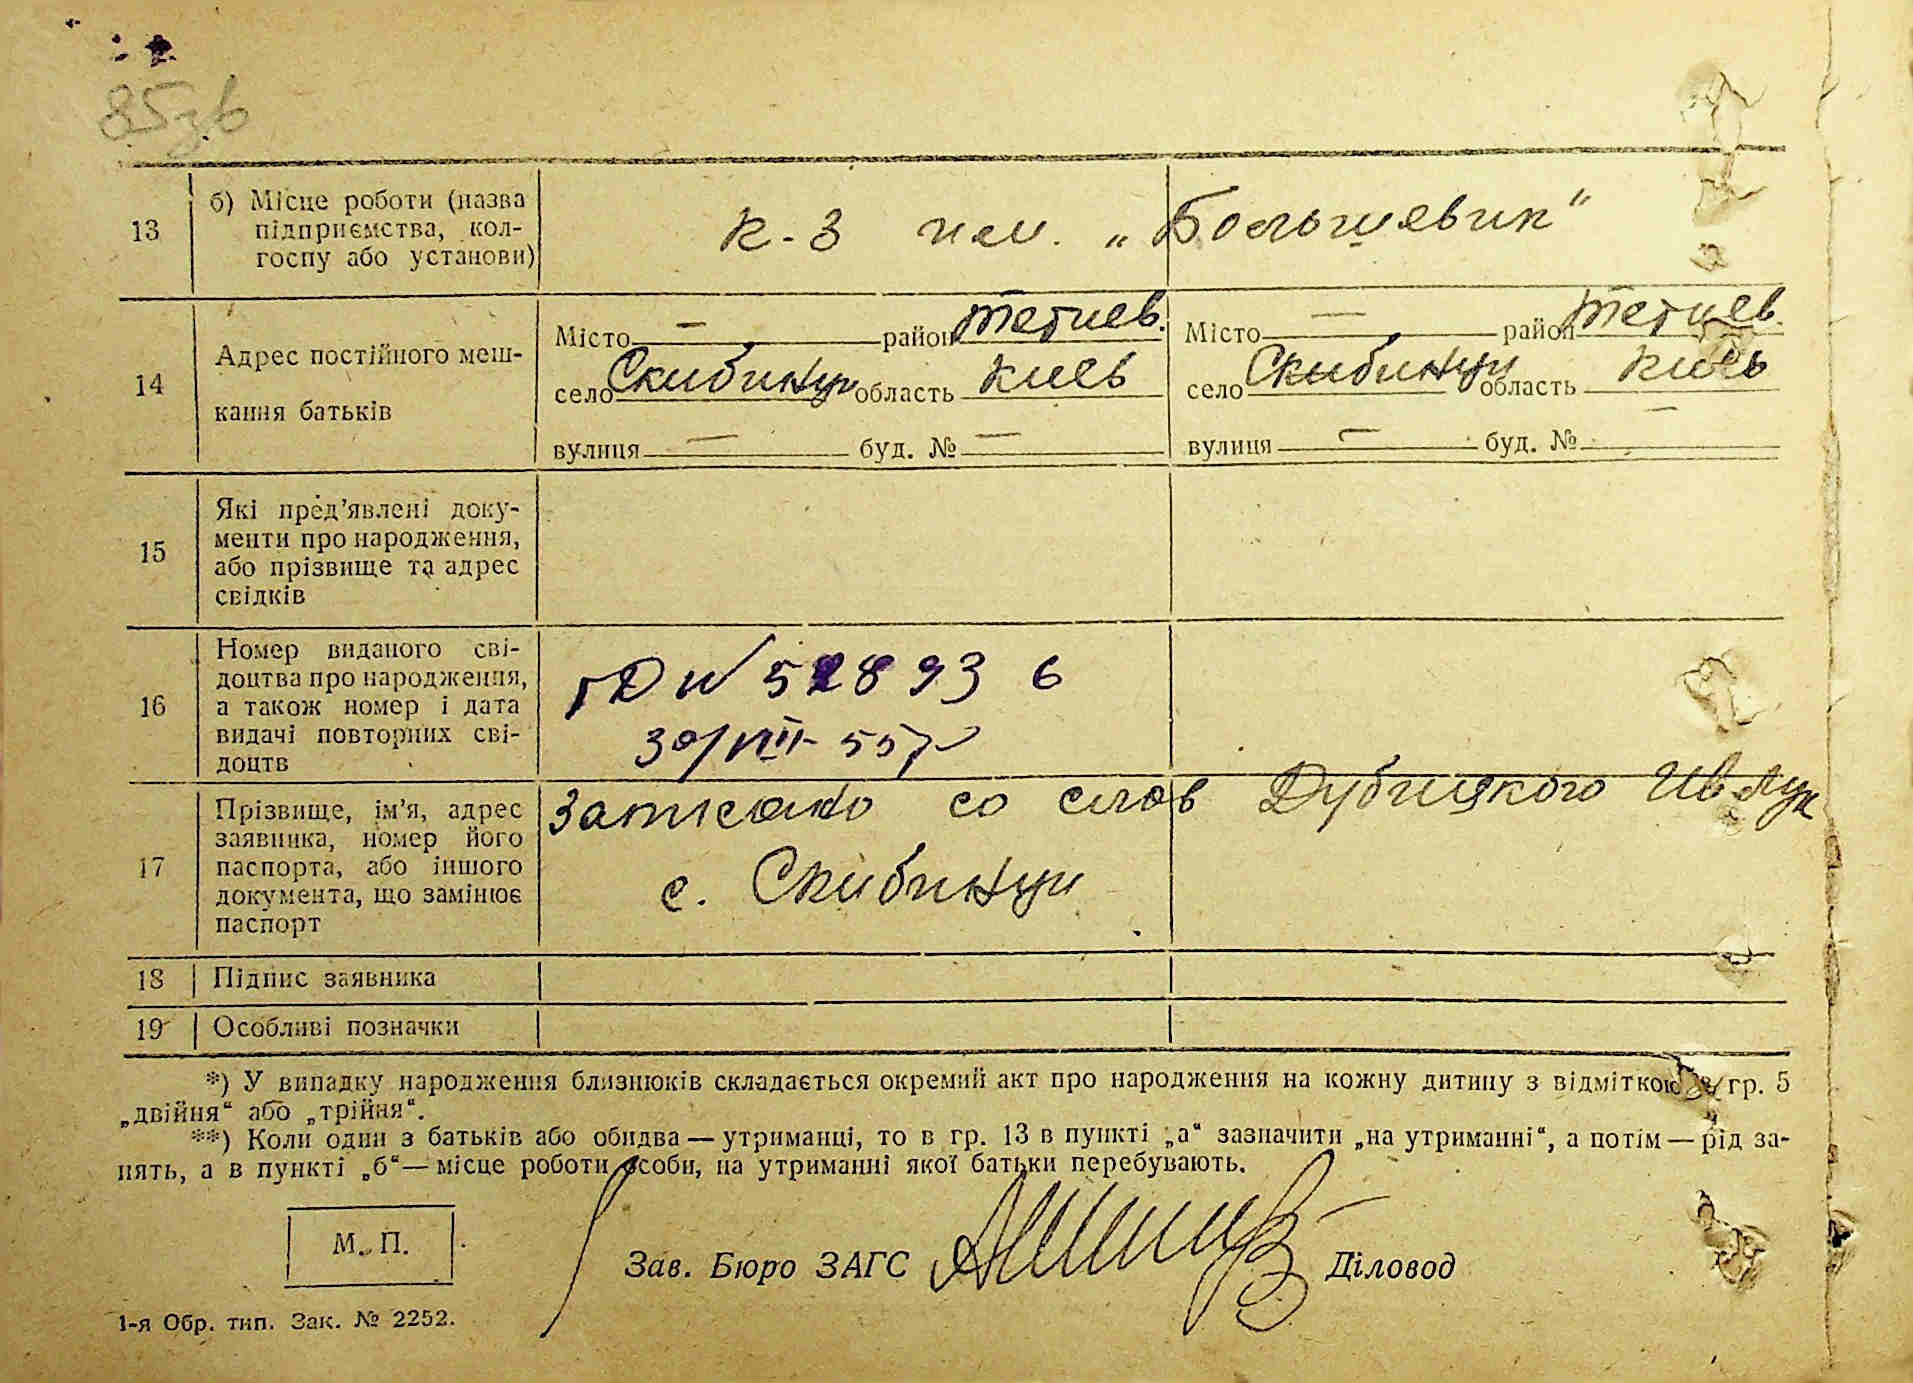 85зв
13 б) Місце роботи (назва підприємства, колгоспу або установи) к-з им. „Большевик“
14 Адрес постійного мешкання батьків
Місто — район Тетиев. Місто — район Тетиев.
село Скибинци область Киев село Скибинци область Киев
вулиця — буд. № — вулиця — буд. № —
15 Які пред’явлені документи про народження, або прізвище та адрес свідків
16 Номер виданого свідоцтва про народження, а також номер і дата видачі повторних свідоцтв
30/VIII-55
17 Прізвище, ім’я, адрес заявника, номер його паспорта, або іншого документа, що замінює паспорт
Записано со слов Дубицкого Ив Лук
с. Скибинци
18 Підпис заявника
19 Особливі позначки
*) У випадку народження близнюків складається окремий акт про народження на кожну дитину з відміткою в гр. 5
„двійня“ або „трійня“.
**) Коли один з батьків або обидва — утриманці, то в гр. 13 в пункті „а“ зазначити „на утриманні“, а потім — рід за-
нять, а в пункті „б“ — місце роботи особи, на утриманні якої батьки перебувають.
М. П.
Зав. Бюро ЗАГС Діловод
1-я Обр. тип. Зак. № 2252.